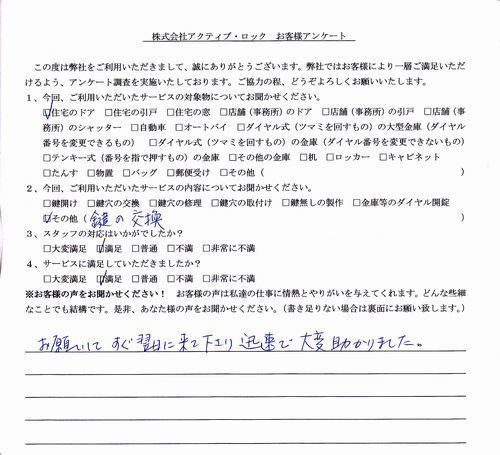 株式会社アクティブ・ロック お客様アンケート
この度は弊社をご利用いただきまして、誠にありがとうございます。弊社ではお客様により一層ご満足いただ
けるよう、アンケート調査を実施いたしております。ご協力の程、どうぞよろしくお願いいたします。
1、今回、ご利用いただいたサービスの対象物についてお聞かせください。
☑住宅のドア □住宅の引戸 □住宅の窓 □店舗(事務所)のドア □店舗(事務所)の引戸 □店舗(事
務所)のシャッター □自動車 □オートバイ □ダイヤル式(ツマミを回すもの)の大型金庫(ダイヤル
番号を変更できるもの) □ダイヤル式(ツマミを回すもの)の金庫(ダイヤル番号を変更できないもの)
□テンキー式(番号を指で押すもの)の金庫 □その他の金庫 □机 □ロッカー □キャビネット
□たんす □物置 □バッグ □郵便受け □その他( )
2、今回、ご利用いただいたサービスの内容についてお聞かせください。
□鍵開け □鍵穴の交換 □鍵穴の修理 □鍵穴の取付け □鍵無しの製作 □金庫等のダイヤル開錠
☑その他(鍵の交換 )
3、スタッフの対応はいかがでしたか?
□大変満足 ☑満足 □普通 □不満 □非常に不満
4、サービスに満足していただきましたか?
□大変満足 ☑満足 □普通 □不満 □非常に不満
※お客様の声をお聞かせください! お客様の声は私達の仕事に情熱とやりがいを与えてくれます。どんな些細
なことでも結構です。是非、あなた様の声をお聞かせください。(書き足りない場合は裏面にお願い致します。)
お願いして すぐ翌日に来て下さり 迅速で 大変 助かりました。